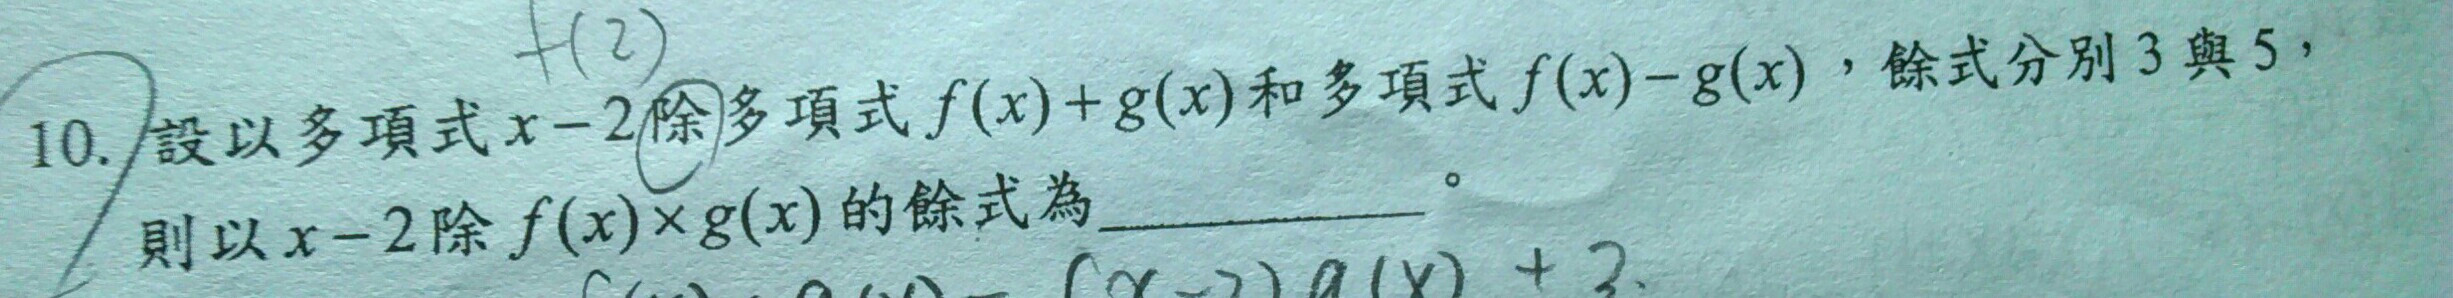 f(2)
10. 設以多項式 x－2 除多項式 f(x)＋g(x) 和多項式 f(x)－g(x)，餘式分別 3 與 5，
則以 x－2 除 f(x)×g(x) 的餘式為__________。